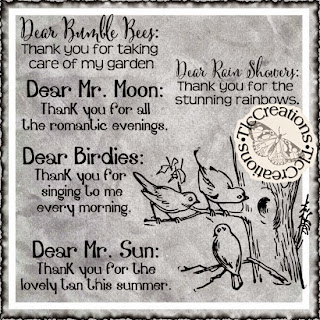 Dear Bumble Bees:
Thank you for taking
care of my garden
Dear Rain Showers:
Thank you for the
stunning rainbows.
Dear Mr. Moon:
Thank you for all
the romantic evenings.
Dear Birdies:
Thank you for
singing to me
every morning.
Dear Mr. Sun:
Thank you for the
lovely tan this summer.
TicCreations•TicCreations•